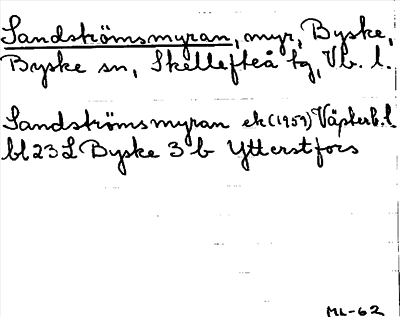 Sandströmsmyran, myr, Byske,
Byske sn, Skellefteå tg, Vb. l.
Sandströmsmyran ek (1959) Västerb. l
bl 23 L Byske 3 b Ytterstfors
ML-62